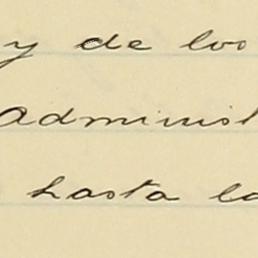 y de los
administ
hasta la